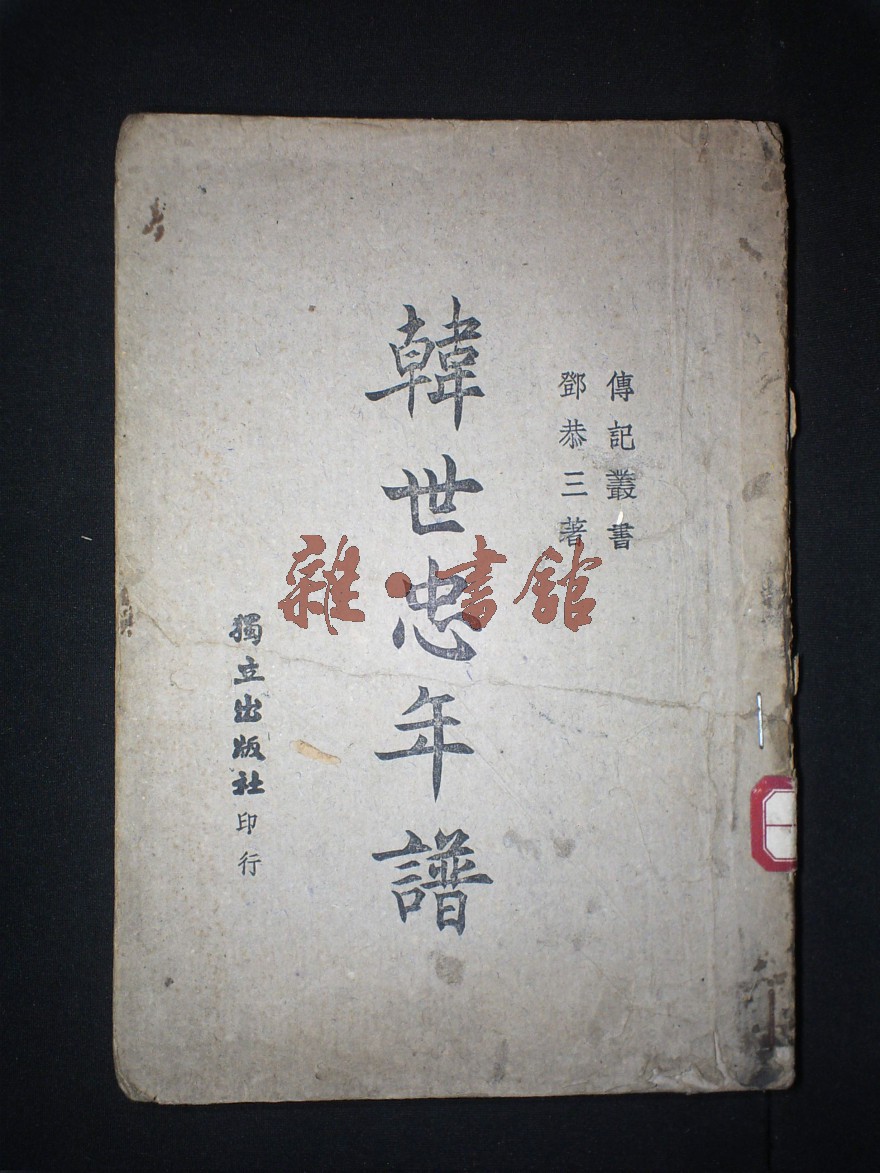 傳記叢書
鄧恭三著
韓世忠年譜
獨立出版社印行
雜·書館